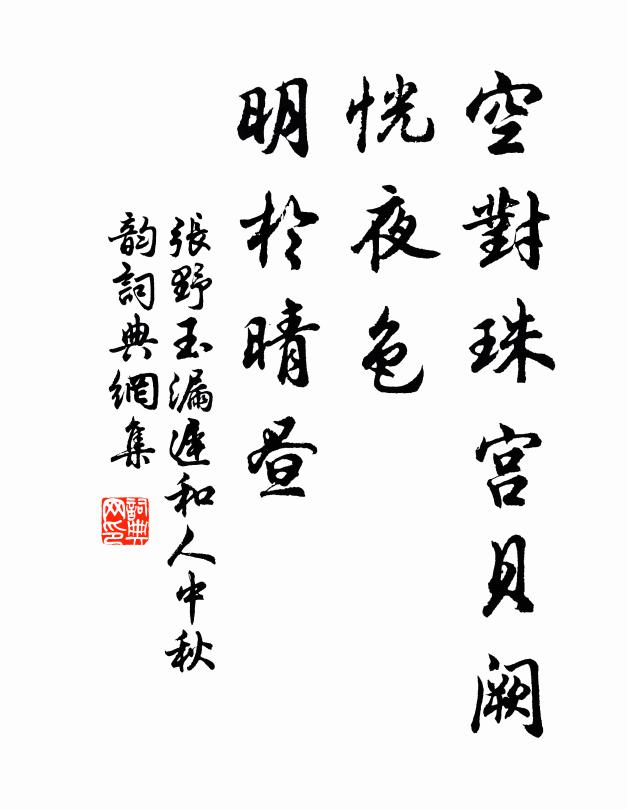 空對珠宮貝闕
恍夜色
明於晴晝
張野玉漏遲和人中秋
韵詞典網集
詞典网印